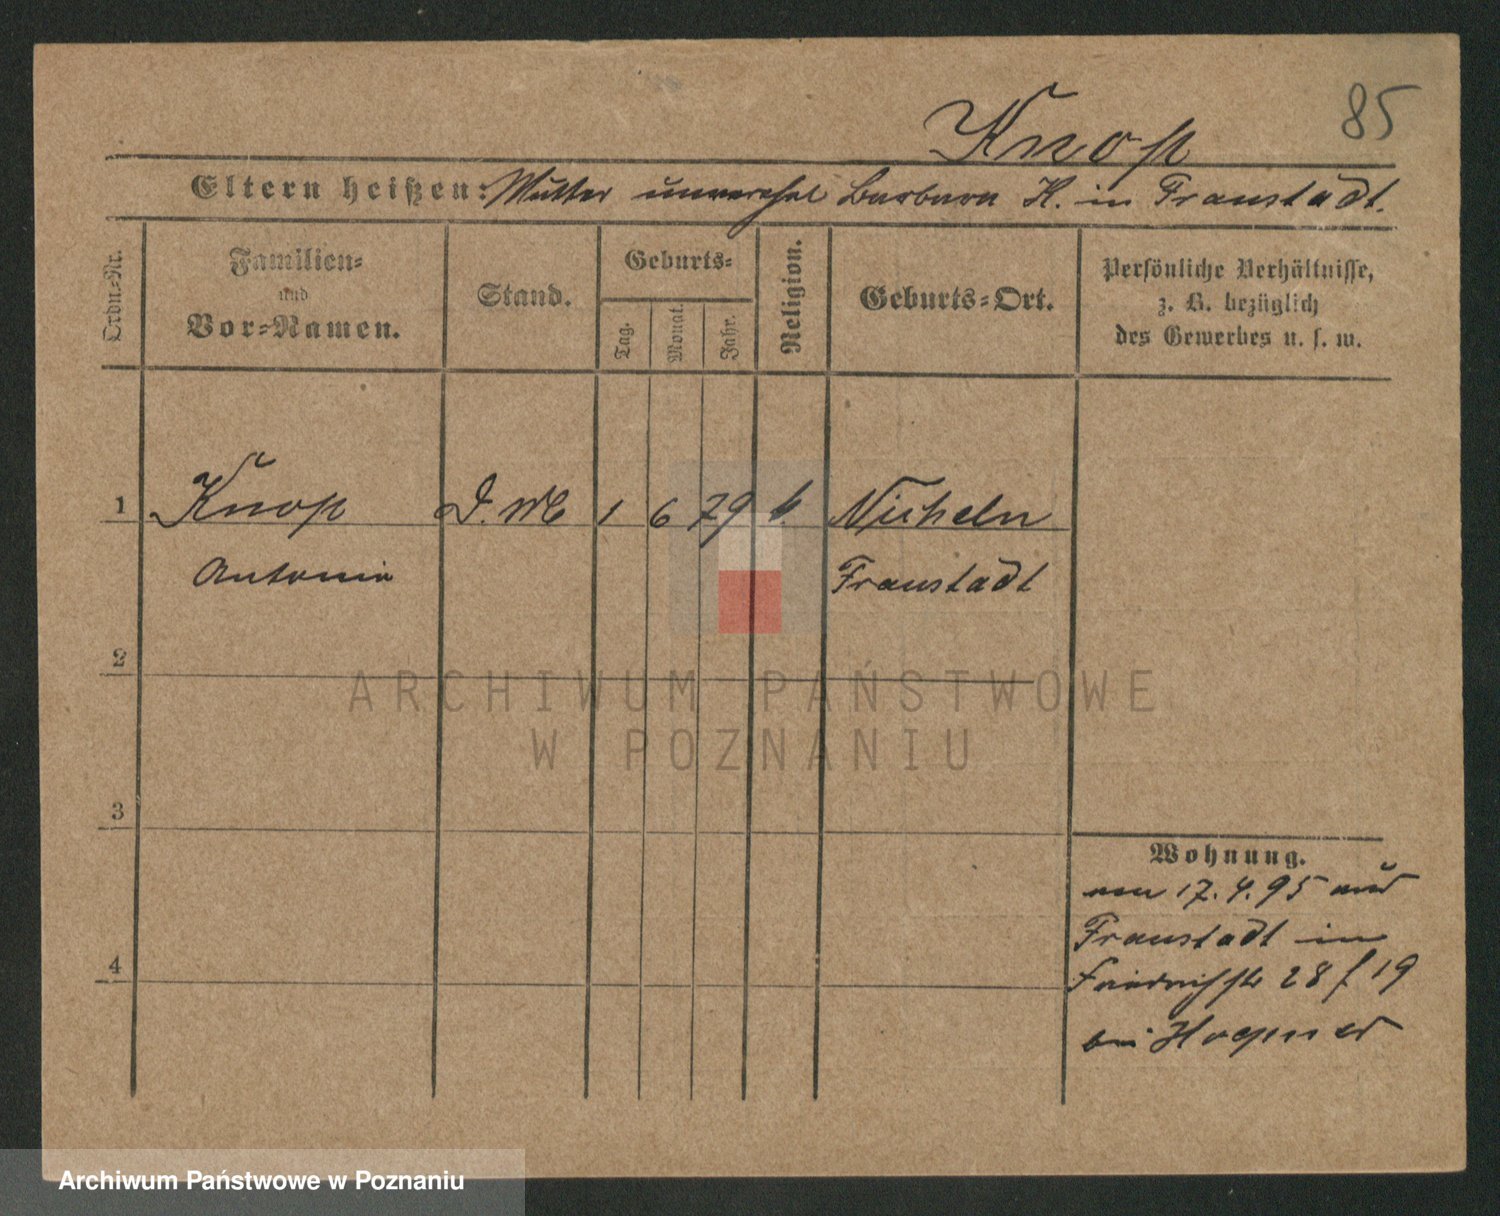 85
Knop
Eltern heißen: Mutter unverehel Barbara K. in Fraustadt.
Ordn.-Nr.
Familien-
und
Vor-Namen.
Stand.
Geburts-
Tag.
Monat.
Jahr.
Religion.
Geburts-Ort.
Persönliche Verhältnisse,
z. B. bezüglich
des Gewerbes u. s. w.
1 Knop D. M 1 6 79 k.
Antonie Fraustadt
2
ARCHIWUM PAŃSTWOWE
W POZNANIU
3
4
Wohnung.
17.4.95 aus
Fraustadt in
Friedrichstr 28 19
bei
Archiwum Państwowe w Poznaniu